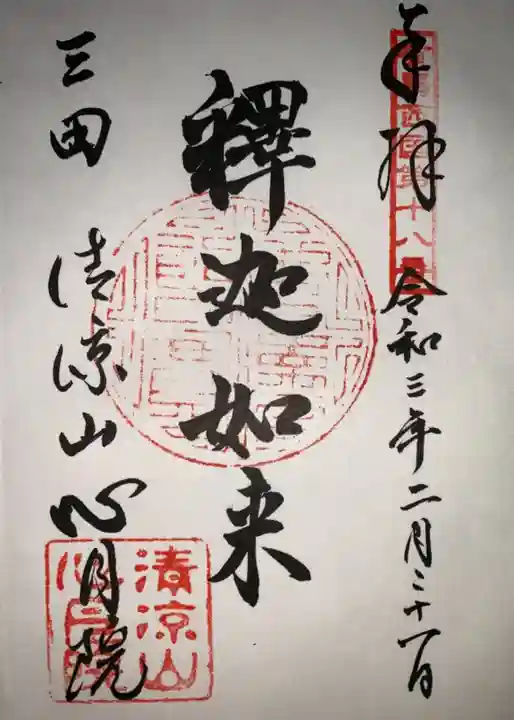 奉拝 令和三年二月二十一日
西国第十八
釋迦如来
三田 清涼山 心月院
清涼山
心月院